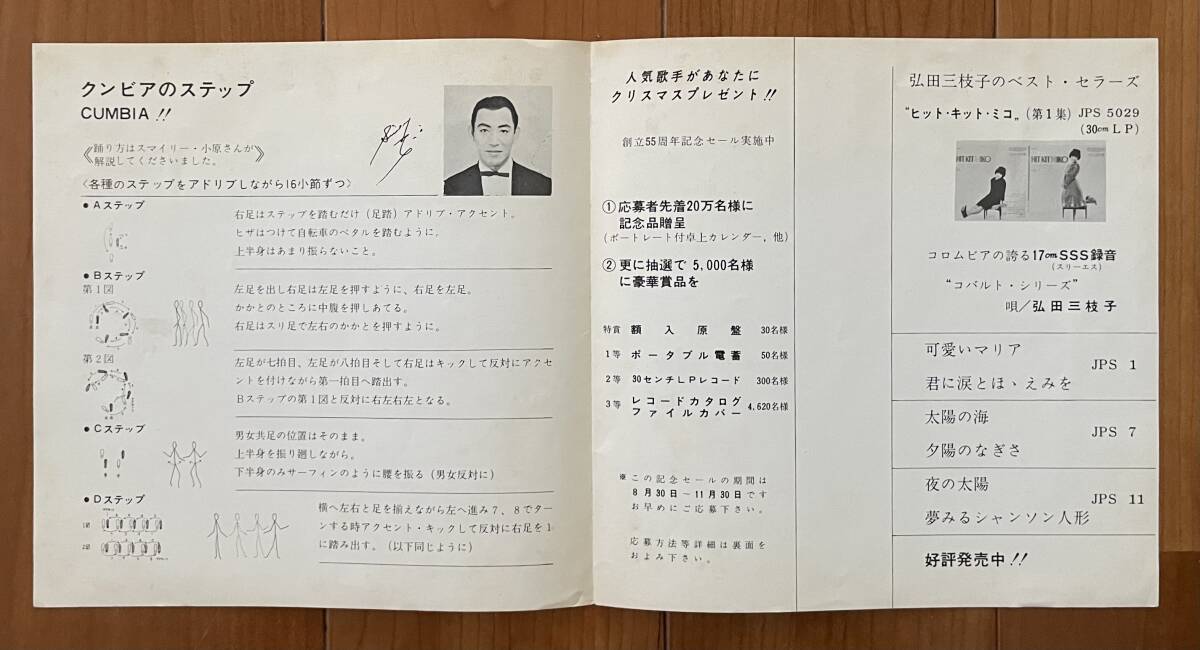 クンビアのステップ
CUMBIA!!
《踊り方はスマイリー・小原さんが
解説してくださいました。》
〈各種のステップをアドリブしながら16小節ずつ〉
●Aステップ
右足はステップを踏むだけ（足踏）アドリブ・アクセント。
ヒザはつけて自転車のペタルを踏むように。
上半身はあまり振らないこと。
●Bステップ
第1図
左足を出し右足は左足を押すように、右足を左足。
かかとのところに中腹を押しあてる。
右足はスリ足で左右のかかとを押すように。
第2図
左足が七拍目、左足が八拍目そして右足はキックして反対にアクセ
ントを付けながら第一拍目へ踏出す。
Bステップの第1図と反対に右左右左となる。
●Cステップ
男女共足の位置はそのまま。
上半身を振り廻しながら。
下半身のみサーフィンのように腰を振る（男女反対に）
●Dステップ
横へ左右と足を揃えながら左へ進み7、8でター
ンする時アクセント・キックして反対に右足を1
に踏み出す。（以下同じように）
人気歌手があなたに
クリスマスプレゼント!!
創立55周年記念セール実施中
①応募者先着20万名様に
記念品贈呈
(ポートレート付卓上カレンダー，他)
②更に抽選で 5,000名様
に豪華賞品を
特賞 額入原盤 30名様
1等 ポータブル電蓄 50名様
2等 30センチLPレコード 300名様
3等 レコードカタログ
ファイルカバー 4,620名様
※この記念セールの期間は
8月30日〜11月30日です
お早めにご応募下さい。
応募方法等詳細は裏面を
およみ下さい。
弘田三枝子のベスト・セラーズ
"ヒット・キット・ミコ„（第1集）JPS 5029
(30cmLP)
HIT KIT MIKO
HIT KIT MIKO
コロムビアの誇る17cmSSS録音
(スリーエス)
"コバルト・シリーズ"
唄／弘田三枝子
可愛いマリア
君に涙とほゝえみを
JPS 1
太陽の海
夕陽のなぎさ
JPS 7
夜の太陽
夢みるシャンソン人形
JPS 11
好評発売中!!